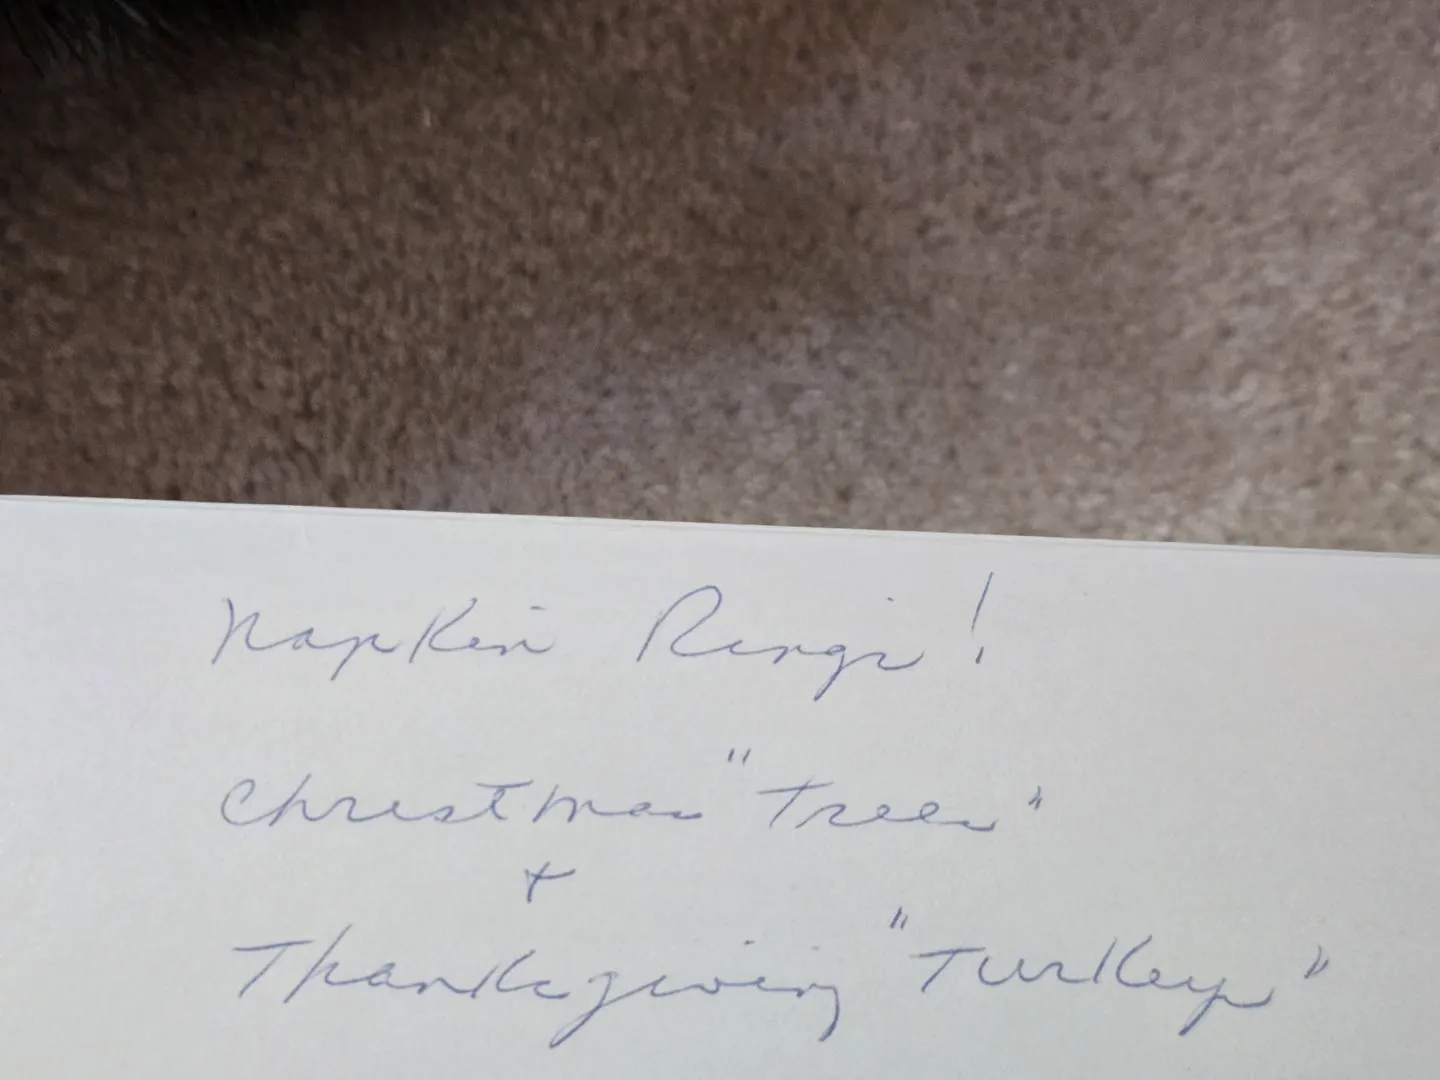 Napkin Rings!
Christmas "Trees"
+
Thanksgiving "Turkeys"